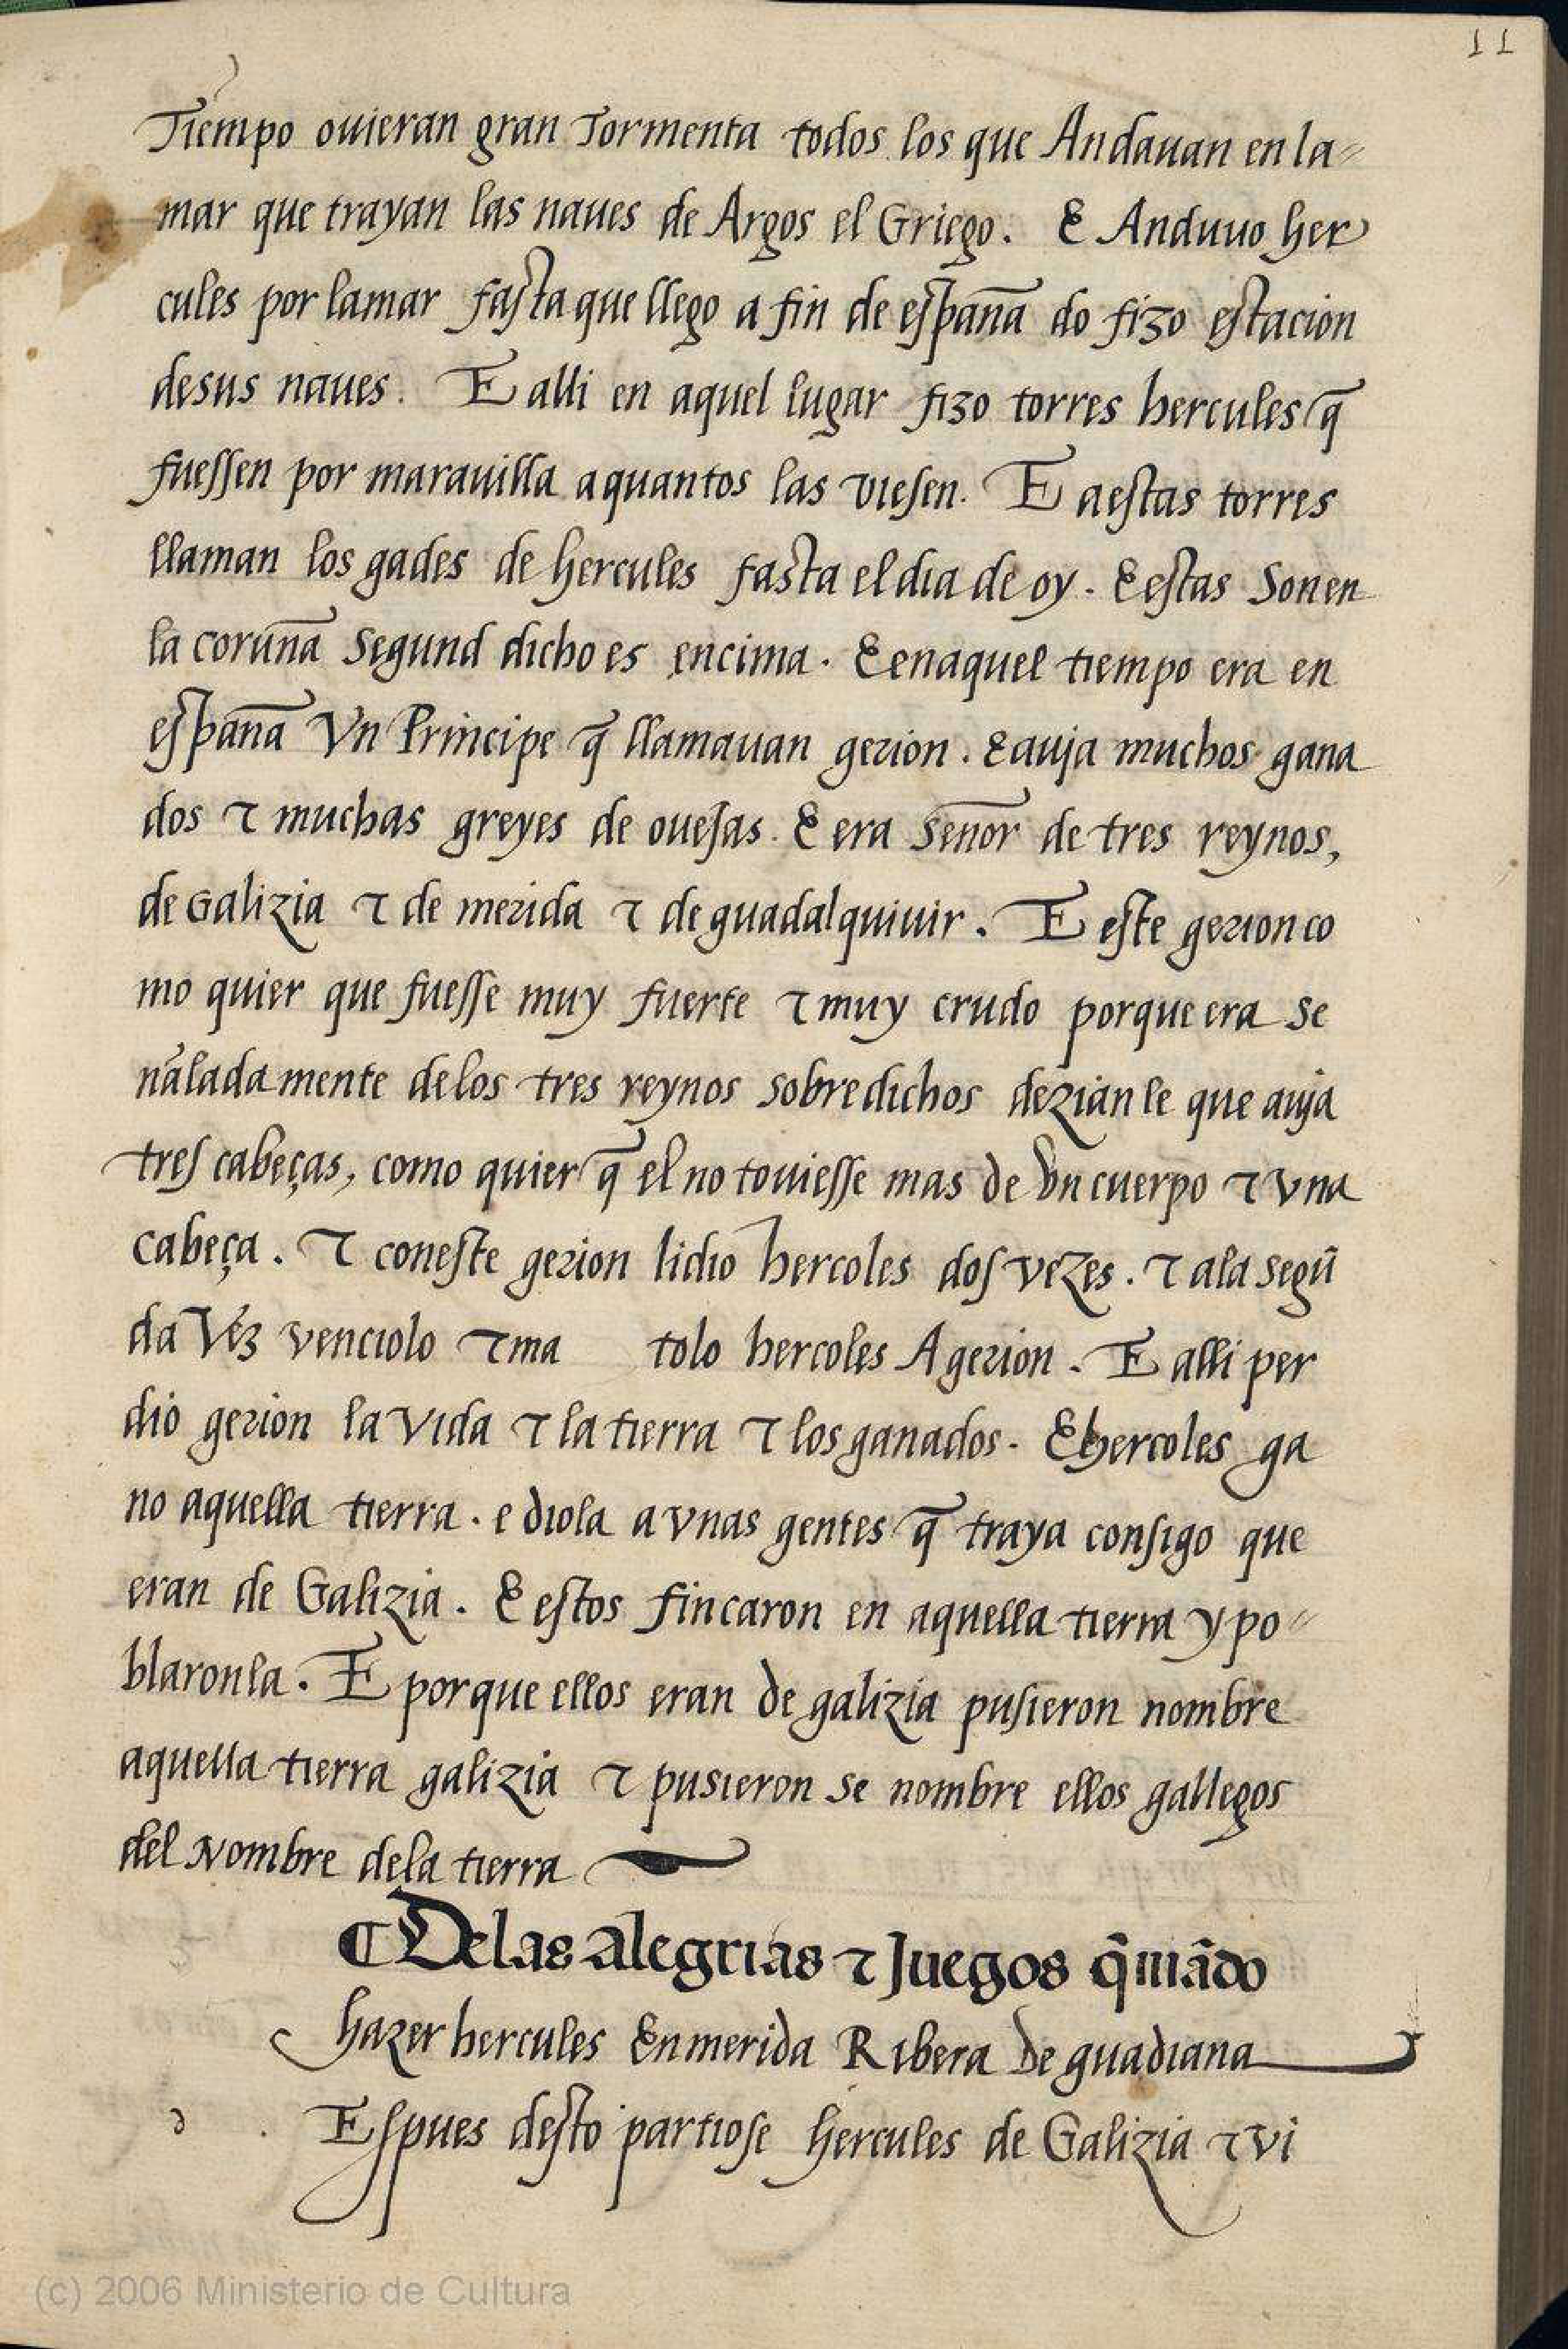 11
Tiempo ouieran gran Tormenta todos los que Andauan en la=
mar que trayan las naues de Argos el Griego. E Anduuo her
cules por lamar fasta que llego a fin de españa do fizo estacion
desus naues. E alli en aquel lugar fizo torres hercules q̃
fuessen por marauilla aquantos las viesen. E aestas torres
llaman los gades de hercules fasta el dia de oy. E estas Son en
la coruña Segund dicho es encima. E enaquel tiempo era en
españa Vn Principe q̃ llamauan gerion. E auja muchos gana
dos ⁊ muchas greyes de ouejas. E era Señor de tres reynos,
de Galizia ⁊ de merida ⁊ de guadalquiuir. E este gerion co
mo quier que fuesse muy fuerte ⁊ muy crudo porque era Se
ñaladamente delos tres reynos sobredichos dezian le que auja
tres cabeças, como quier q̃ el no touiesse mas de vn cuerpo ⁊ vna
cabeça. ⁊ coneste gerion lidio hercoles dos vezes. ⁊ ala segũ
da Vez venciolo ⁊ ma tolo hercoles A gerion. E alli per
dio gerion la vida ⁊ la tierra ⁊ los ganados. E hercoles ga
no aquella tierra. e diola a vnas gentes q̃ traya consigo que
eran de Galizia. E estos fincaron en aquella tierra y po=
blaronla. E porque ellos eran de galizia pusieron nombre
aquella tierra galizia ⁊ pusieron se nombre ellos gallegos
del Nombre dela tierra
¶ Delas alegrias ⁊ Juegos q̃ mãdo
hazer hercules En merida Ribera de guadiana
d Espues desto partiose hercules de Galizia ⁊ vi
(c) 2006 Ministerio de Cultura